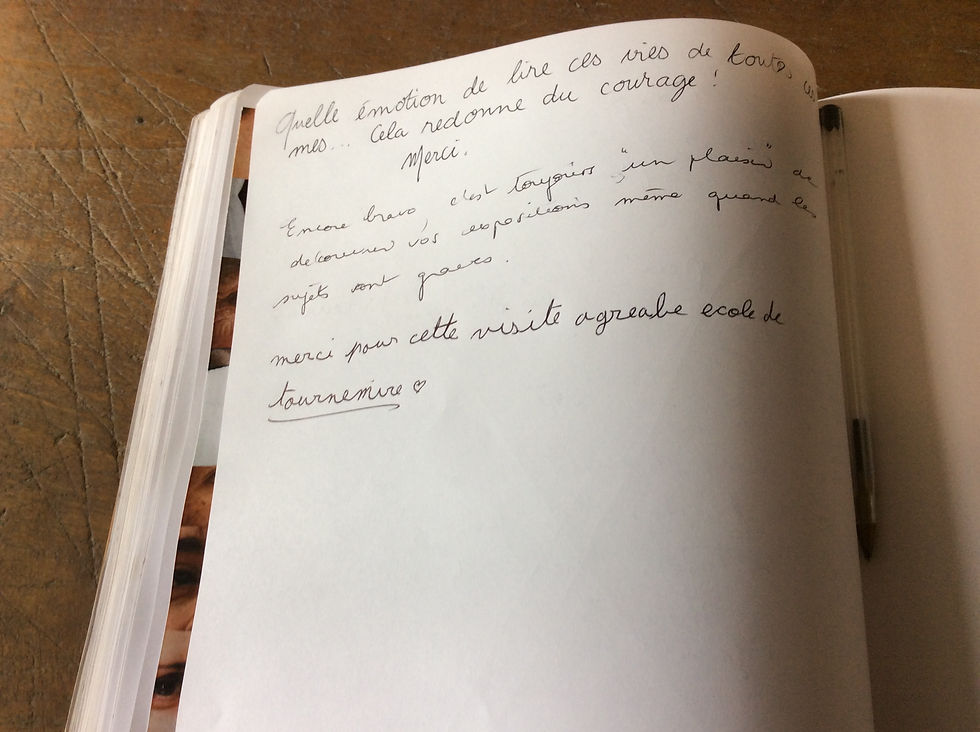 Quelle émotion de lire ces vies de toutes ces
mes... Cela redonne du courage !
Merci.
Encore bravo, c'est toujours "un plaisir" de
découvrir vos expositions même quand les
sujets sont graves.
merci pour cette visite agreabe ecole de
tournemire ♡